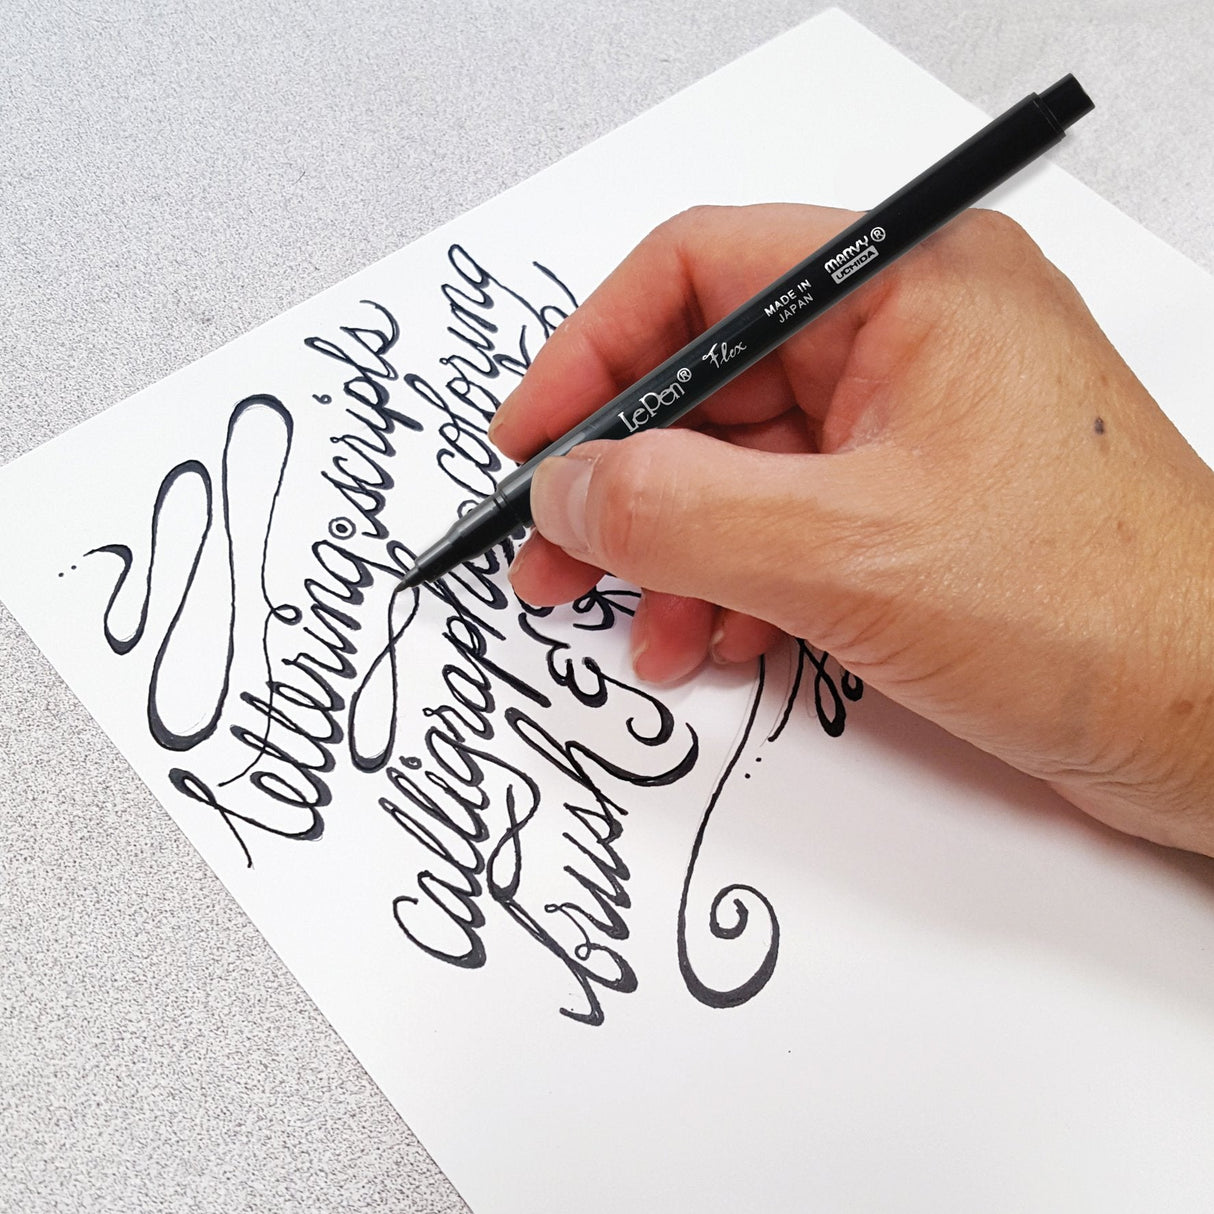 lettering • scripts
Calligraphy • coloring
brush &
LePen® Flex MADE IN JAPAN MARVY® UCHIDA